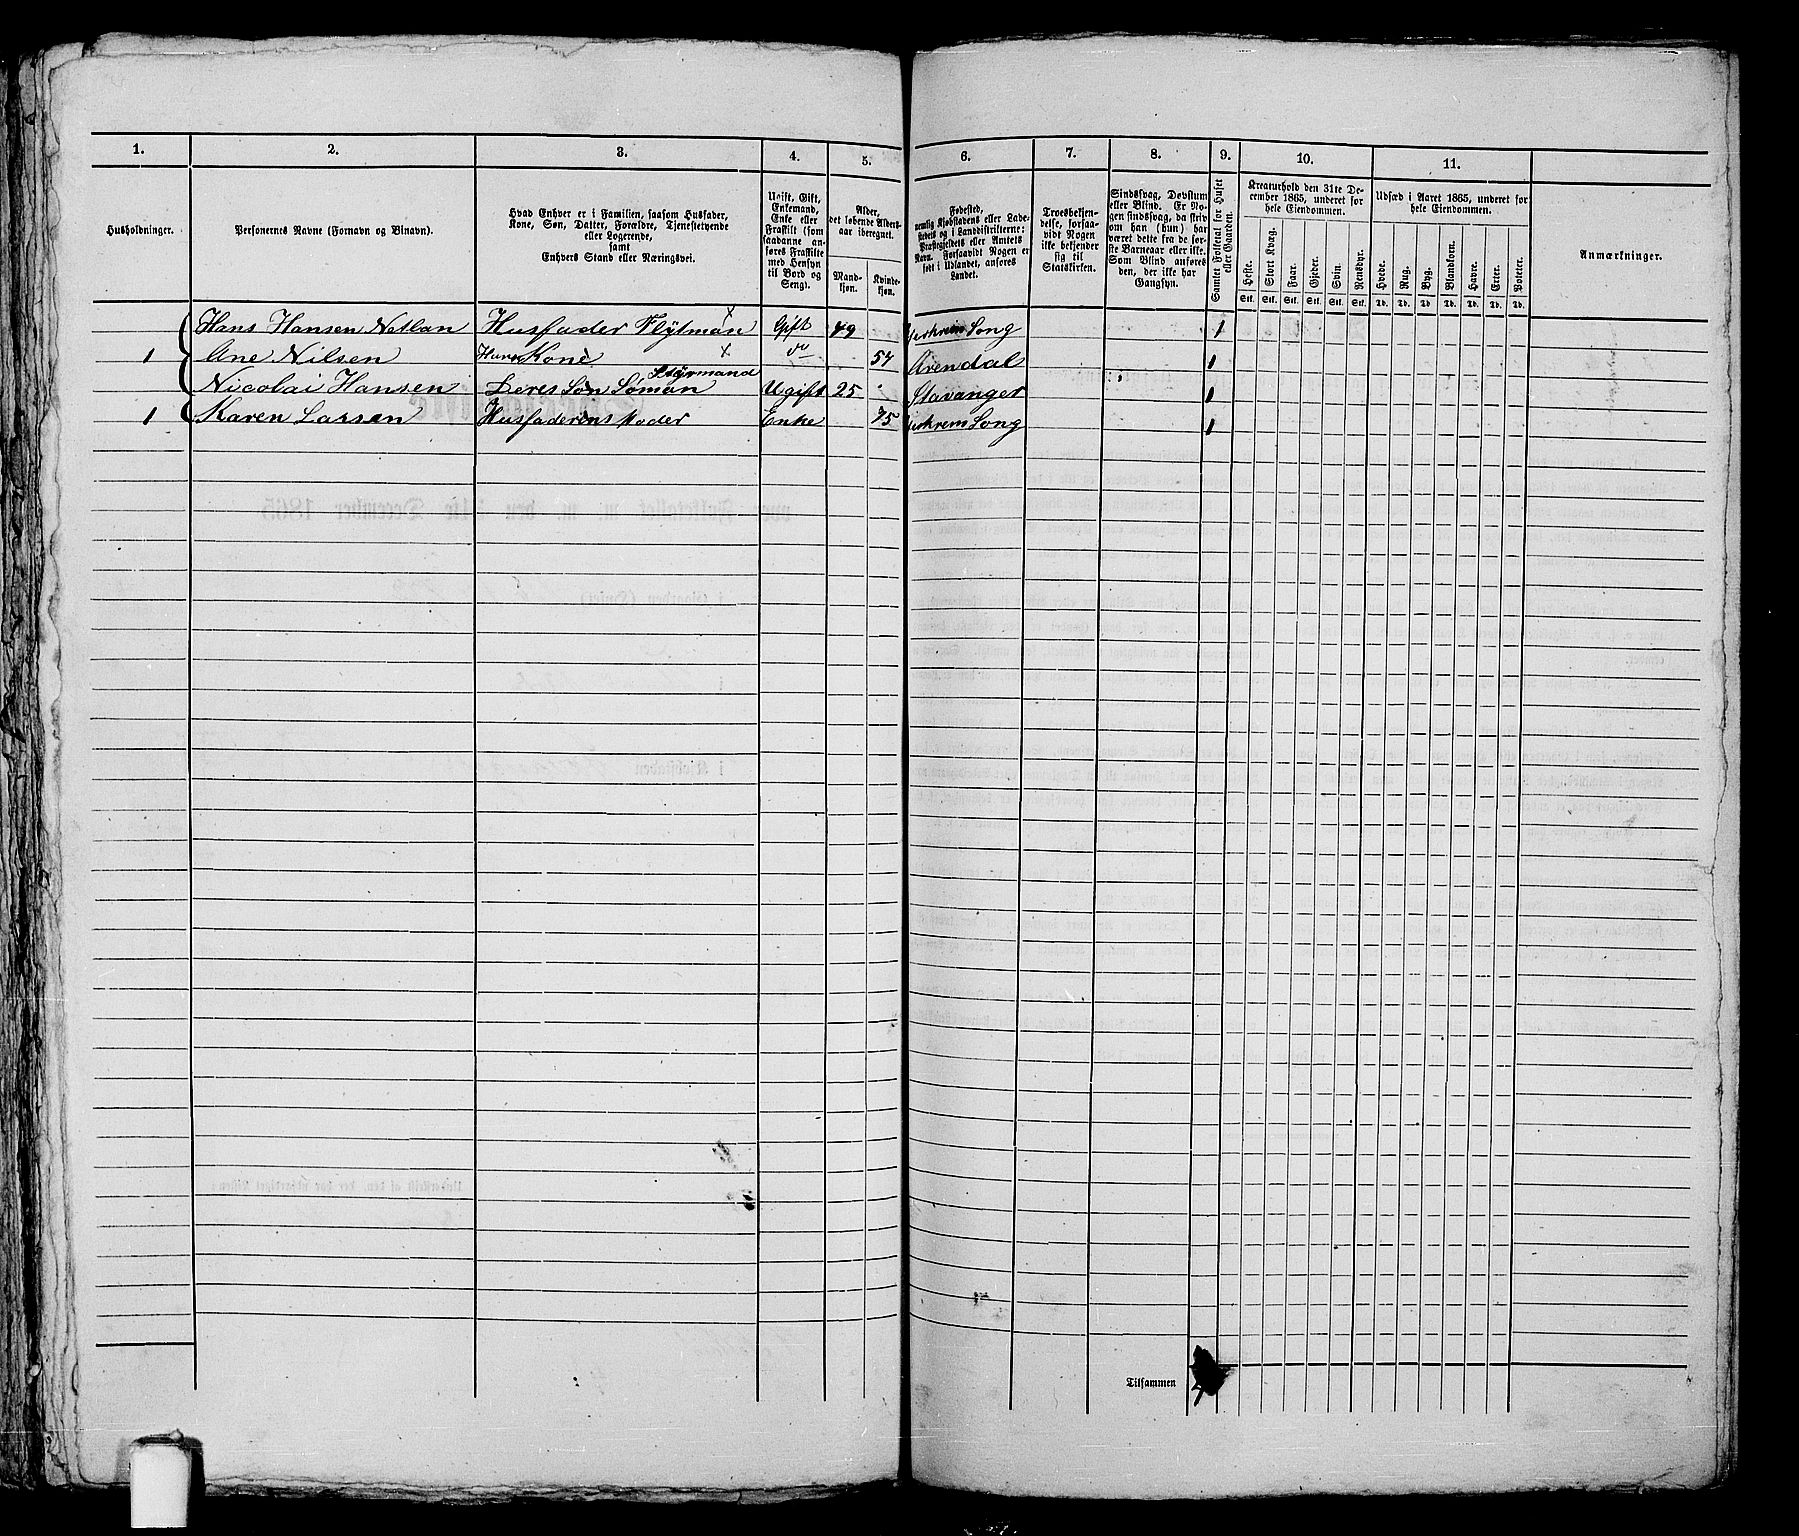 1. 2. 3. 4. 5. 6. 7. 8. 9. 10. 11.
Husholdninger.
Personernes Navne (Fornavn og Binavn).
Hvad Enhver er i Familien, saasom Husfader,
Kone, Søn, Datter, Forældre, Tjenestetyende
eller Logerende,
samt
Enhvers Stand eller Næringsvei.
Ugift, Gift,
Enkemand,
Enke eller
Fraskilt (som
saadanne an-
føres Fraskilte
med Hensyn
til Bord og
Seng).
Alder,
det løbende Alders-
aar iberegnet.
Mand-
kjøn.
Kvinde-
kjøn.
Fødested,
nemlig Kjøbstadens eller Lade-
stedets og i Landdistrikterne:
Præstegjeldets eller Amtets
Navn. Forsaavidt Nogen er
født i Udlandet, anføres
Landet.
Troesbekjen-
delse, forsaa-
vidt Nogen
ikke bekjender
sig til
Statskirken.
Sindssvag, Døvstum
eller Blind. Er No-
gen sindssvag, da skriv
om han (hun) har
været dette fra de før-
ste Barneaar eller ikke.
Som Blind anføres
den, der ikke har
Gangsyn.
Samlet Folketal for Huset
eller Gaarden.
Kreaturhold den 31te De-
cember 1865, underet for
hele Eiendommen.
Heste. Stort Kvæg. Faar. Gjeder. Svin. Rensdyr.
Stk. Stk. Stk. Stk. Stk. Stk.
Udsæd i Aaret 1865, underet for
hele Eiendommen.
Hvede. Rug. Byg. Blandkorn. Havre. Erter. Poteter.
Td. Td. Td. Td. Td. Td. Td.
Anmærkninger.
Hans Hansen Netlan Husfader Flytman Gift 49 Song 1
1 Ane Nilsen Hans Kone do 57 Arendal 1
Styrmand
Nicolai Hansen Deres Søn Søman Ugift 25 Stavanger 1
1 Karen Larsen Husfaderens Moder Enke 75 Song 1
Tilsammen